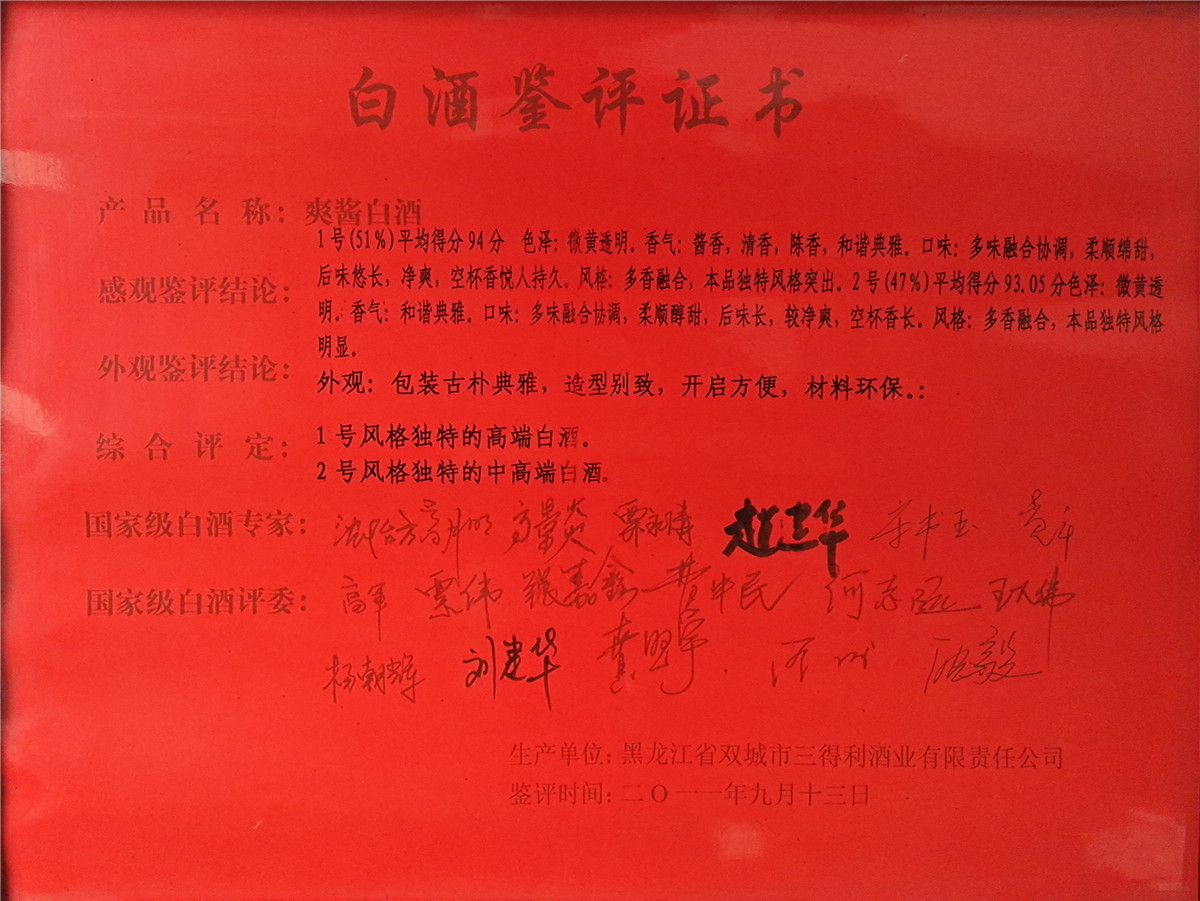 白酒鉴评证书
产品名称：爽酱白酒
感观鉴评结论：
1号(51%)平均得分94分 色泽：微黄透明。香气：酱香，清香，陈香，和谐典雅。口味：多味融合协调，柔顺绵甜，
后味悠长，净爽，空杯香悦人持久。风格：多香融合，本品独特风格突出。2号(47%)平均得分93.05分色泽：微黄透
明。香气：和谐典雅。口味：多味融合协调，柔顺醇甜，后味长，较净爽，空杯香长。风格：多香融合，本品独特风格
明显。
外观鉴评结论：
外观：包装古朴典雅，造型别致，开启方便，材料环保。：
综合评定：
1号风格独特的高端白酒。
2号风格独特的中高端白酒。
国家级白酒专家：沈怡方 高月明 高景炎 栗永清 赵建华
国家级白酒评委：高军 张嘉鑫 费中民 何志远 王大伟
杨朝辉 刘建华 龚明宇
生产单位：黑龙江省双城市三得利酒业有限责任公司
鉴评时间：二O一一年九月十三日